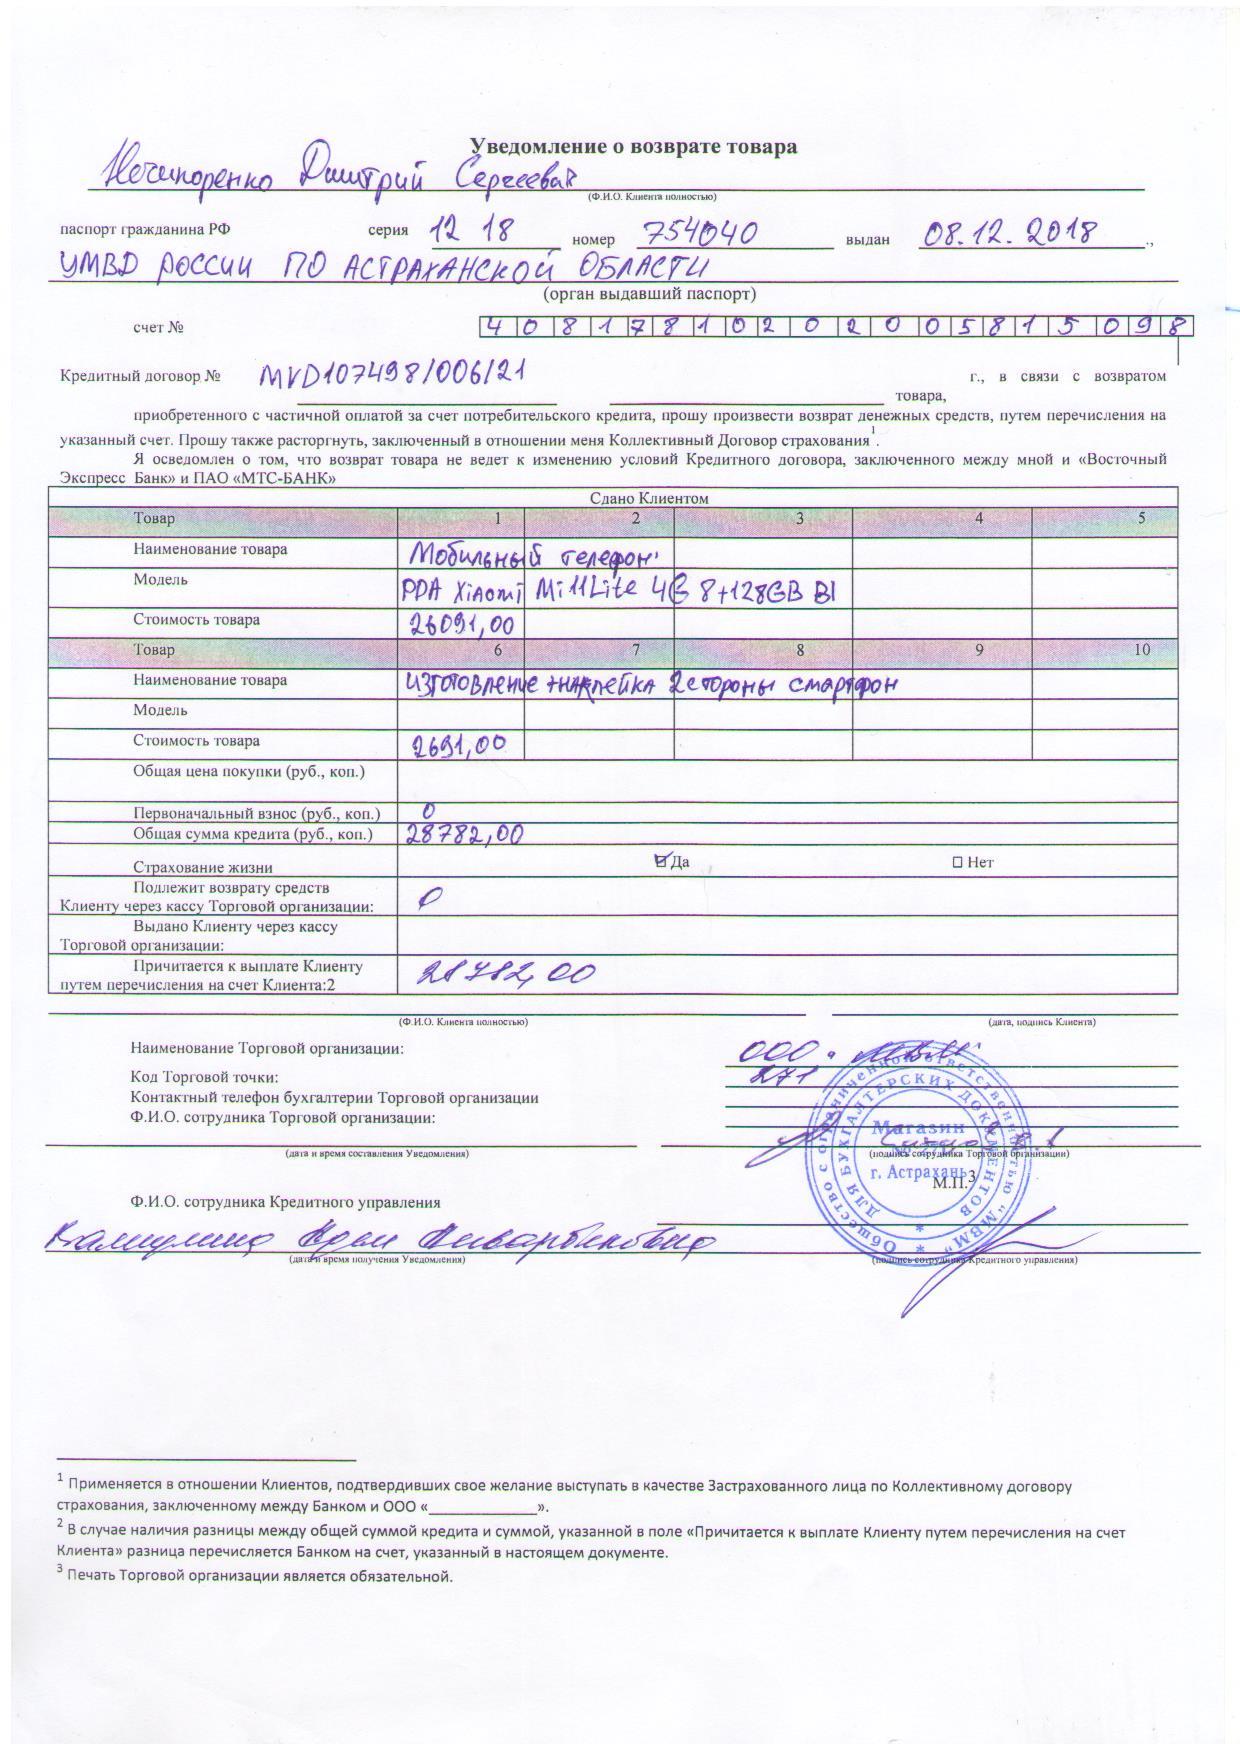 Уведомление о возврате товара
Нечипоренко Дмитрий Сергеевич
(Ф.И.О. Клиента полностью)
паспорт гражданина РФ серия 12 18 номер 754040 выдан 08.12.2018 .,
УМВД РОССИИ ПО АСТРАХАНСКОЙ ОБЛАСТИ
(орган выдавший паспорт)
счет № 4 0 8 1 7 8 1 0 2 0 2 0 0 5 8 1 5 0 9 8
Кредитный договор № MVD107498/006/21 г., в связи с возвратом
товара,
приобретенного с частичной оплатой за счет потребительского кредита, прошу произвести возврат денежных средств, путем перечисления на
указанный счет. Прошу также расторгнуть, заключенный в отношении меня Коллективный Договор страхования1.
Я осведомлен о том, что возврат товара не ведет к изменению условий Кредитного договора, заключенного между мной и «Восточный
Экспресс Банк» и ПАО «МТС-БАНК»
Сдано Клиентом
Товар 1 2 3 4 5
Наименование товара Мобильный телефон
Модель PDA Xiaomi Mi11Lite 4G 8+128GB Bl
Стоимость товара 26091,00
Товар 6 7 8 9 10
Наименование товара Изготовление +наклейка 2 стороны смартфон
Модель
Стоимость товара 2691,00
Общая цена покупки (руб., коп.)
Первоначальный взнос (руб., коп.) 0
Общая сумма кредита (руб., коп.) 28782,00
Страхование жизни Да Нет
Подлежит возврату средств
Клиенту через кассу Торговой организации: 0
Выдано Клиенту через кассу
Торговой организации:
Причитается к выплате Клиенту
путем перечисления на счет Клиента:2 28782,00
(Ф.И.О. Клиента полностью) (дата, подпись Клиента)
Наименование Торговой организации: ООО "МВМ"
Код Торговой точки: 271
Контактный телефон бухгалтерии Торговой организации
Ф.И.О. сотрудника Торговой организации:
(дата и время составления Уведомления) (подпись сотрудника Торговой организации)
М.П.3
Общество с ограниченной ответственностью "МВМ"
ДЛЯ БУХГАЛТЕРСКИХ ДОКУМЕНТОВ
Магазин
г. Астрахань
Ф.И.О. сотрудника Кредитного управления
(дата и время получения Уведомления) (подпись сотрудника Кредитного управления)
1 Применяется в отношении Клиентов, подтвердивших свое желание выступать в качестве Застрахованного лица по Коллективному договору
страхования, заключенному между Банком и ООО «_____________».
2 В случае наличия разницы между общей суммой кредита и суммой, указанной в поле «Причитается к выплате Клиенту путем перечисления на счет
Клиента» разница перечисляется Банком на счет, указанный в настоящем документе.
3 Печать Торговой организации является обязательной.